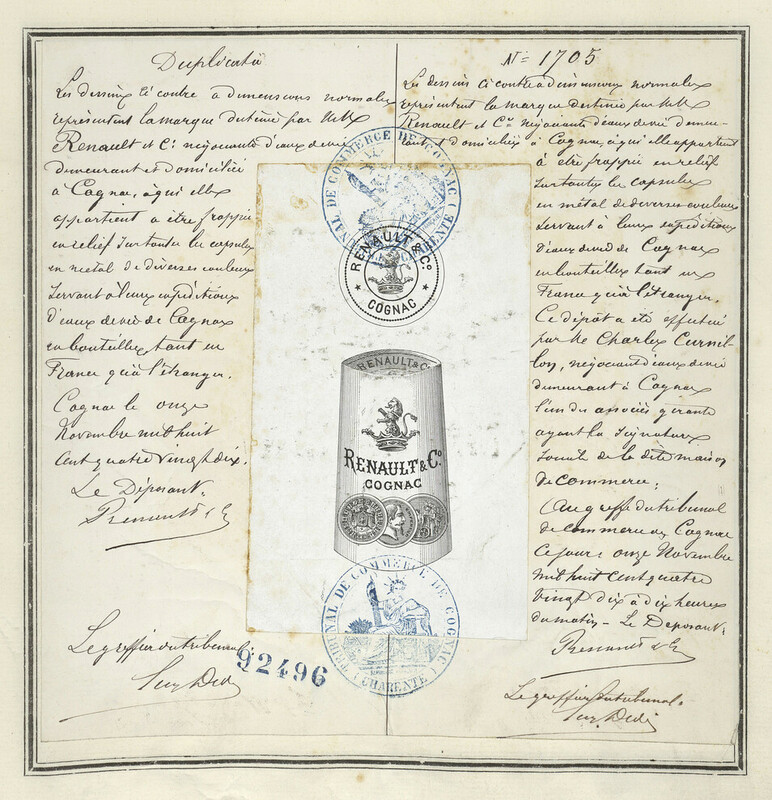 Duplicata
Les dessins ci contre à dimensions normales
représentent la marque destinée par MM
Renault et Cie négociants d'eaux de vie
demeurant et domiciliés
à Cognac, à qui elle
appartient a être frappée
en relief sur toutes les capsules
en métal de diverses couleurs
servant à leurs expéditions
d'eaux de vie de Cognac
en bouteilles tant en
France qu'à l'étranger.
Cognac le onze
Novembre mil huit
cent quatre vingt dix.
Le Déposant.
Renault & Co
Le greffier du tribunal
92496
TRIBUNAL DE COMMERCE DE COGNAC (CHARENTE)
RENAULT & Co.
COGNAC
RENAULT & Co
RENAULT & Co
COGNAC
TRIBUNAL DE COMMERCE DE COGNAC (CHARENTE)
No 1705
Les dessins ci contre à dimensions normales
représentent la marque destinée par MM
Renault et Cie négociants d'eaux de vie demeu-
rant et domiciliés à Cognac, à qui elle appartient
à être frappée en relief
sur toutes les capsules
en métal de diverses couleurs
servant à leurs expéditions
d'eaux de vie de Cognac
en bouteilles tant en
France qu'à l'étranger.
Ce dépôt a été effectué
par Mr Charles Curnil-
lon, négociant d'eaux de vie
demeurant à Cognac
l'un des associés gérants
ayant la signature
sociale de la dite maison
de commerce.
Au greffe du tribunal
de commerce de Cognac
ce jour onze Novembre
mil huit cent quatre
vingt dix à dix heures
du matin - Le Déposant.
Renault & Co
Le greffier du tribunal.